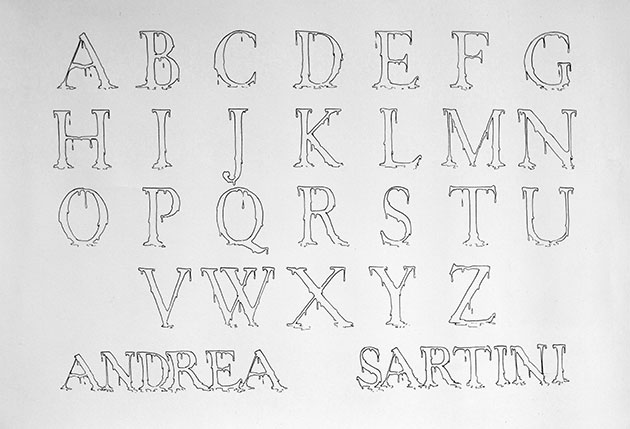 A B C D E F G
H I J K L M N
O P Q R S T U
V W X Y Z
ANDREA SARTINI